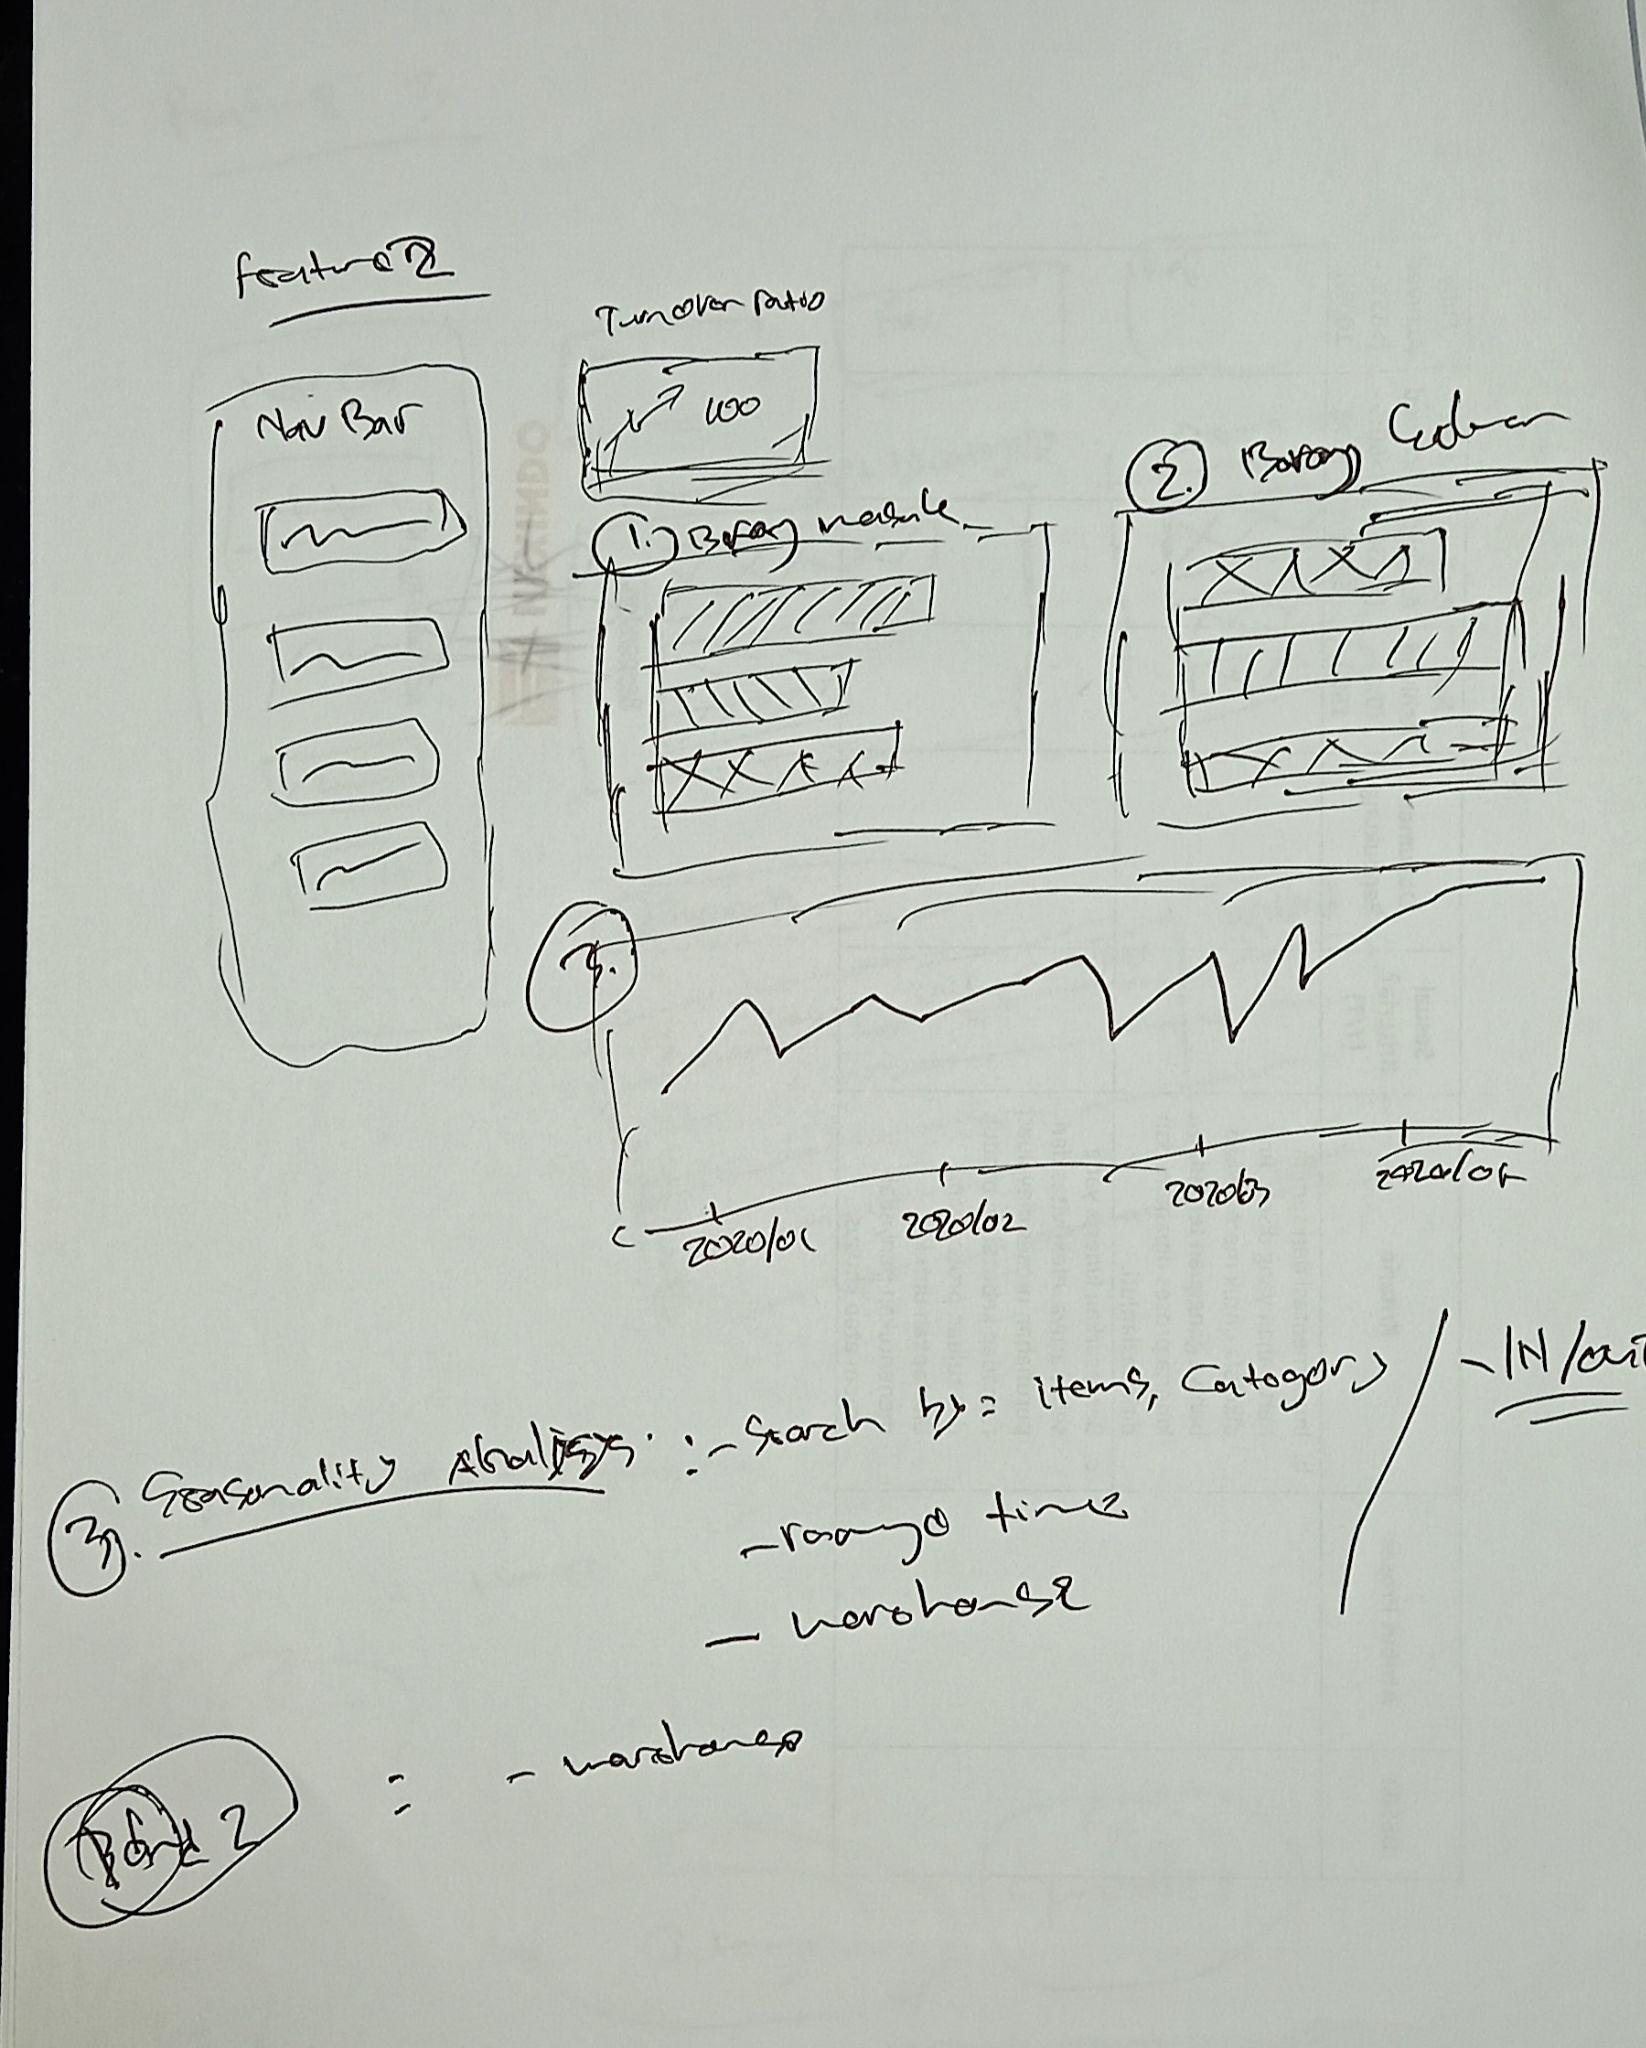 Feature 2
Turnover ratio
Nav Bar
100
1. Barang masuk
2. Barang keluar
3.
2020/01
2020/02
2020/03
3. Seasonality Analisys : - Search by = items, Category
- IN/out
- range time
- warehouse
: - warehouse